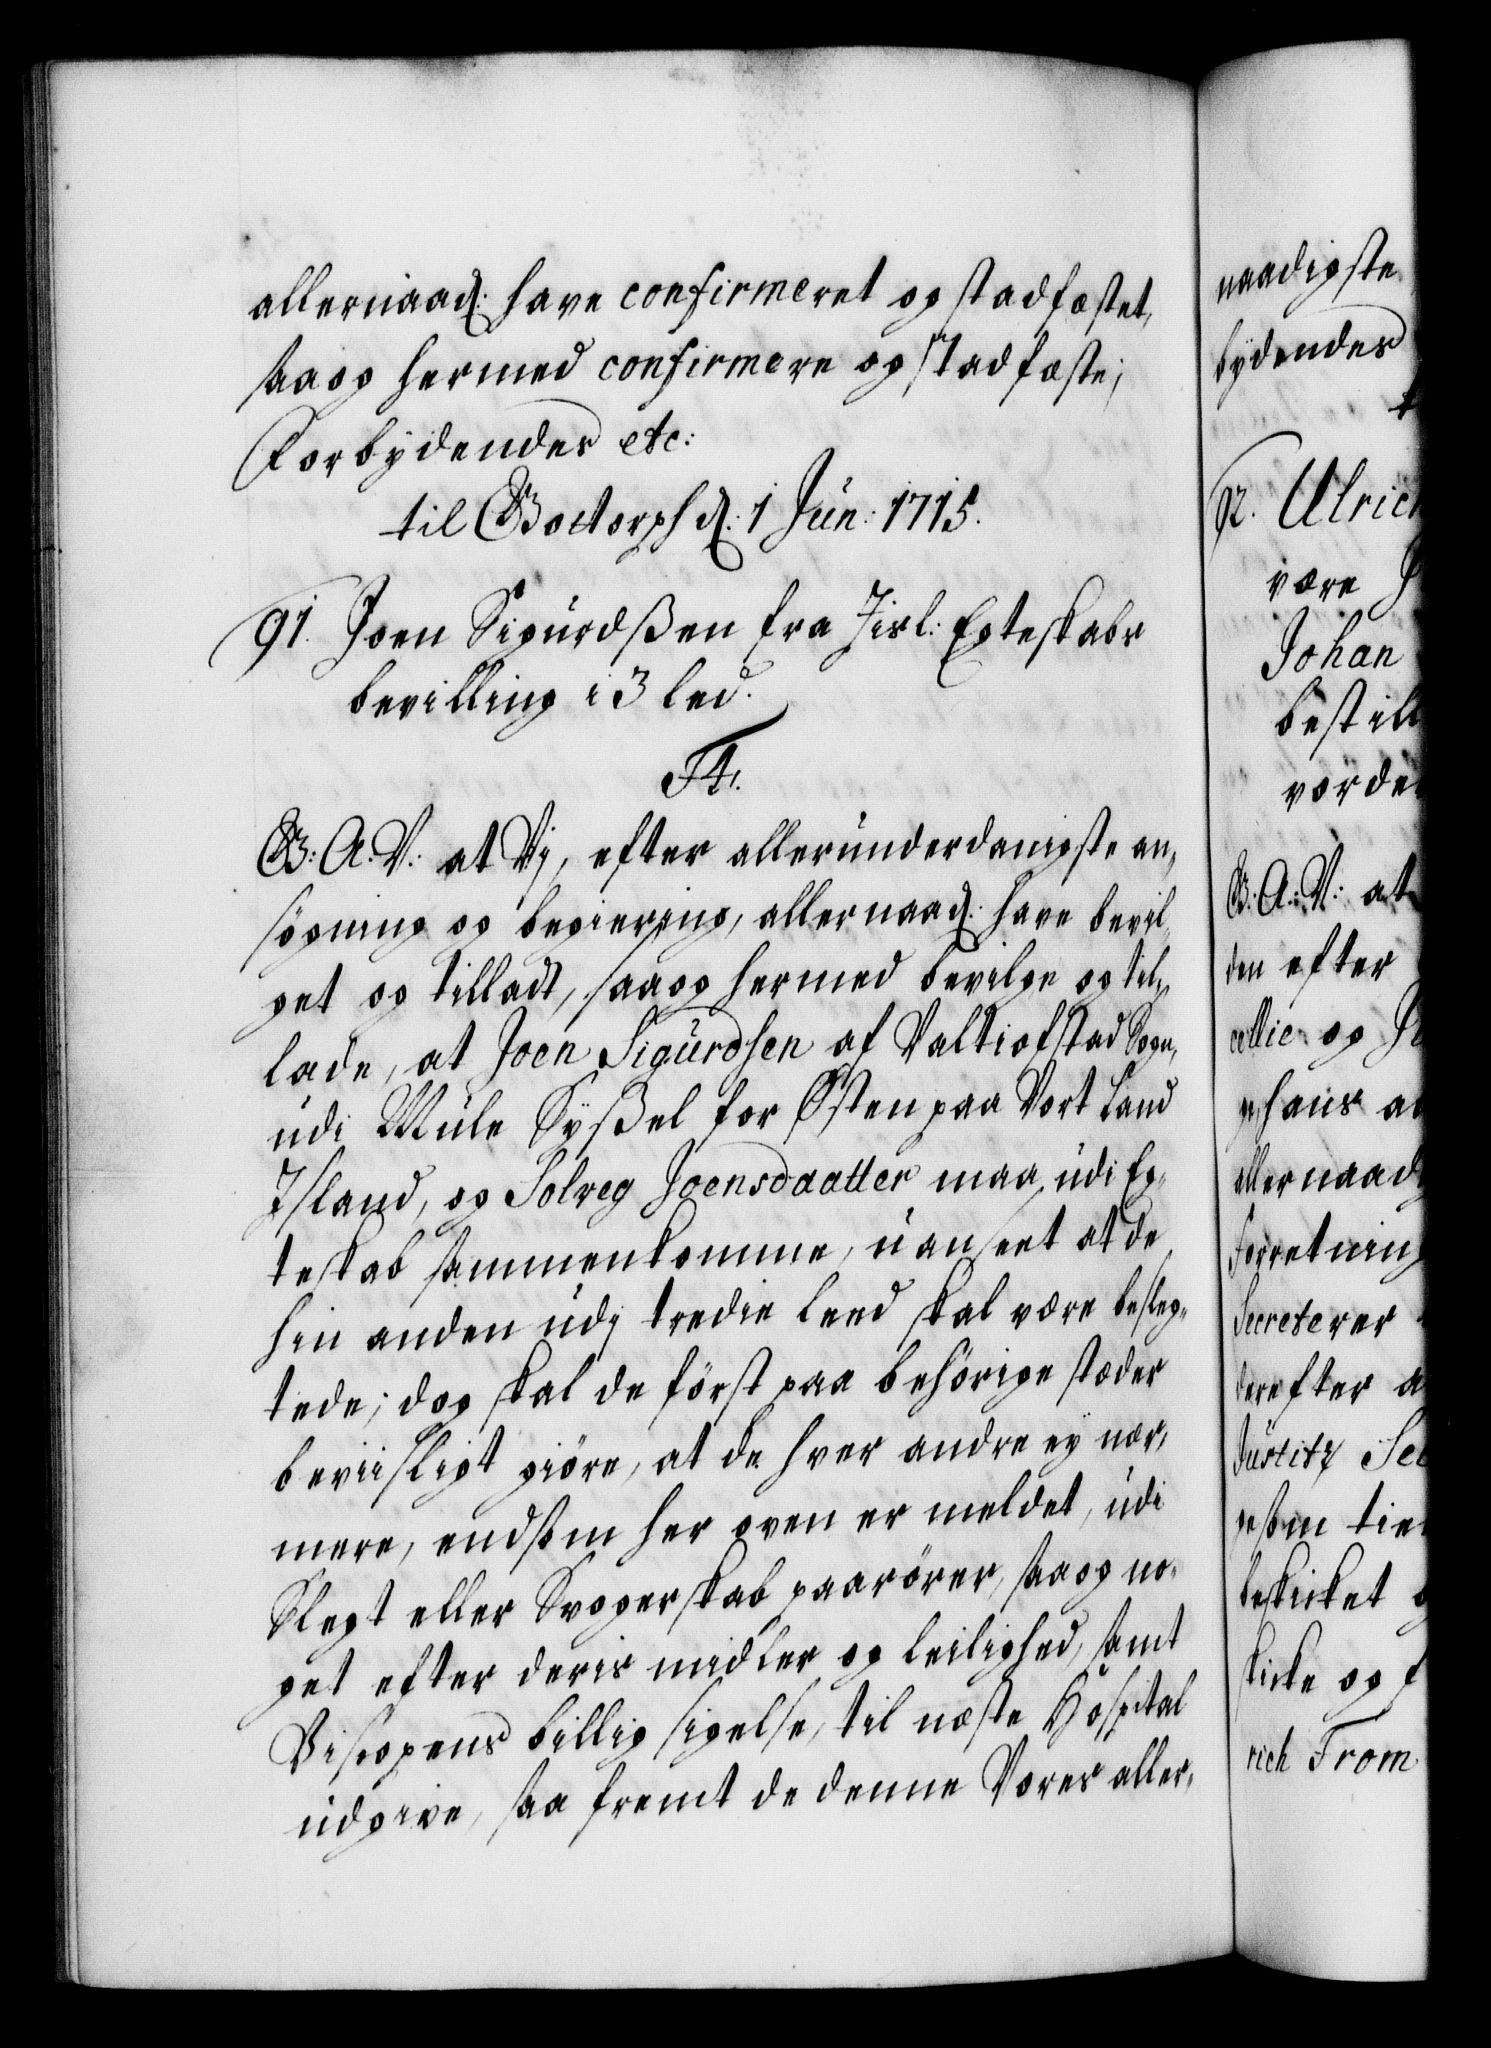 allernaad: have confirmeret og stadfæstet,
saa og hermed confirmere og stadfæste;
Forbydendes etc:
til Gottorph d: 1 Jun: 1715.
91. Joen Sigurdßen fra Jisl: Egteskabs
bevilling i 3 led.
F4.
G: A: V: at Vj, efter allerunderdanigste an-
søgning og begiering, allernaad: have bevil-
get og tilladt, saa og hermed bevilge og til-
lade, at Joen Sigurdsen af Valtiofstad Sogn,
udi Mule Syßel for Østen paa Vort Land
Island, og Solveg Joensdaatter maa udi Eg-
teskab sammenkomme, uanseet at de
hin anden udj tredie leed skal være besleg-
tede; dog skal de først paa behörige stæder
beviisligt giöre, at de hver andre ey nær-
mere, end som her oven er meldet, udi
Slegt eller Svogerskab paarörer, saa og no-
get efter deris midler og leilighed, samt
Biscopens billig sigelse, til næste Hospital
udgive, saa fremt de denne Vores aller-
naadigste
bydendes
92. Ulrich
være
Johan
bestill
vorde
G: A: V: at
den efter
cellie og
hans
allernaad
Forretning
Secreterer
derefter
Justitz
som
beskicket
skicke og
rich From